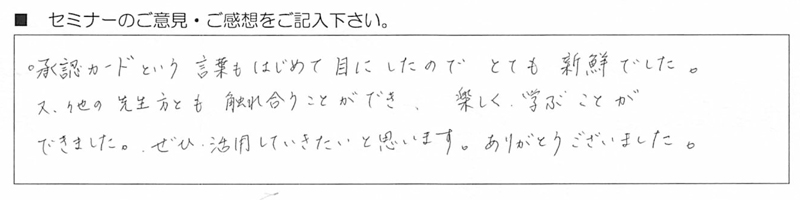 ■ セミナーのご意見・ご感想をご記入下さい。
。承認カードという言葉もはじめて目にしたのでとても新鮮でした。
又、他の先生方とも触れ合うことができ、楽しく学ぶことが
できました。ぜひ活用していきたいと思います。ありがとうございました。